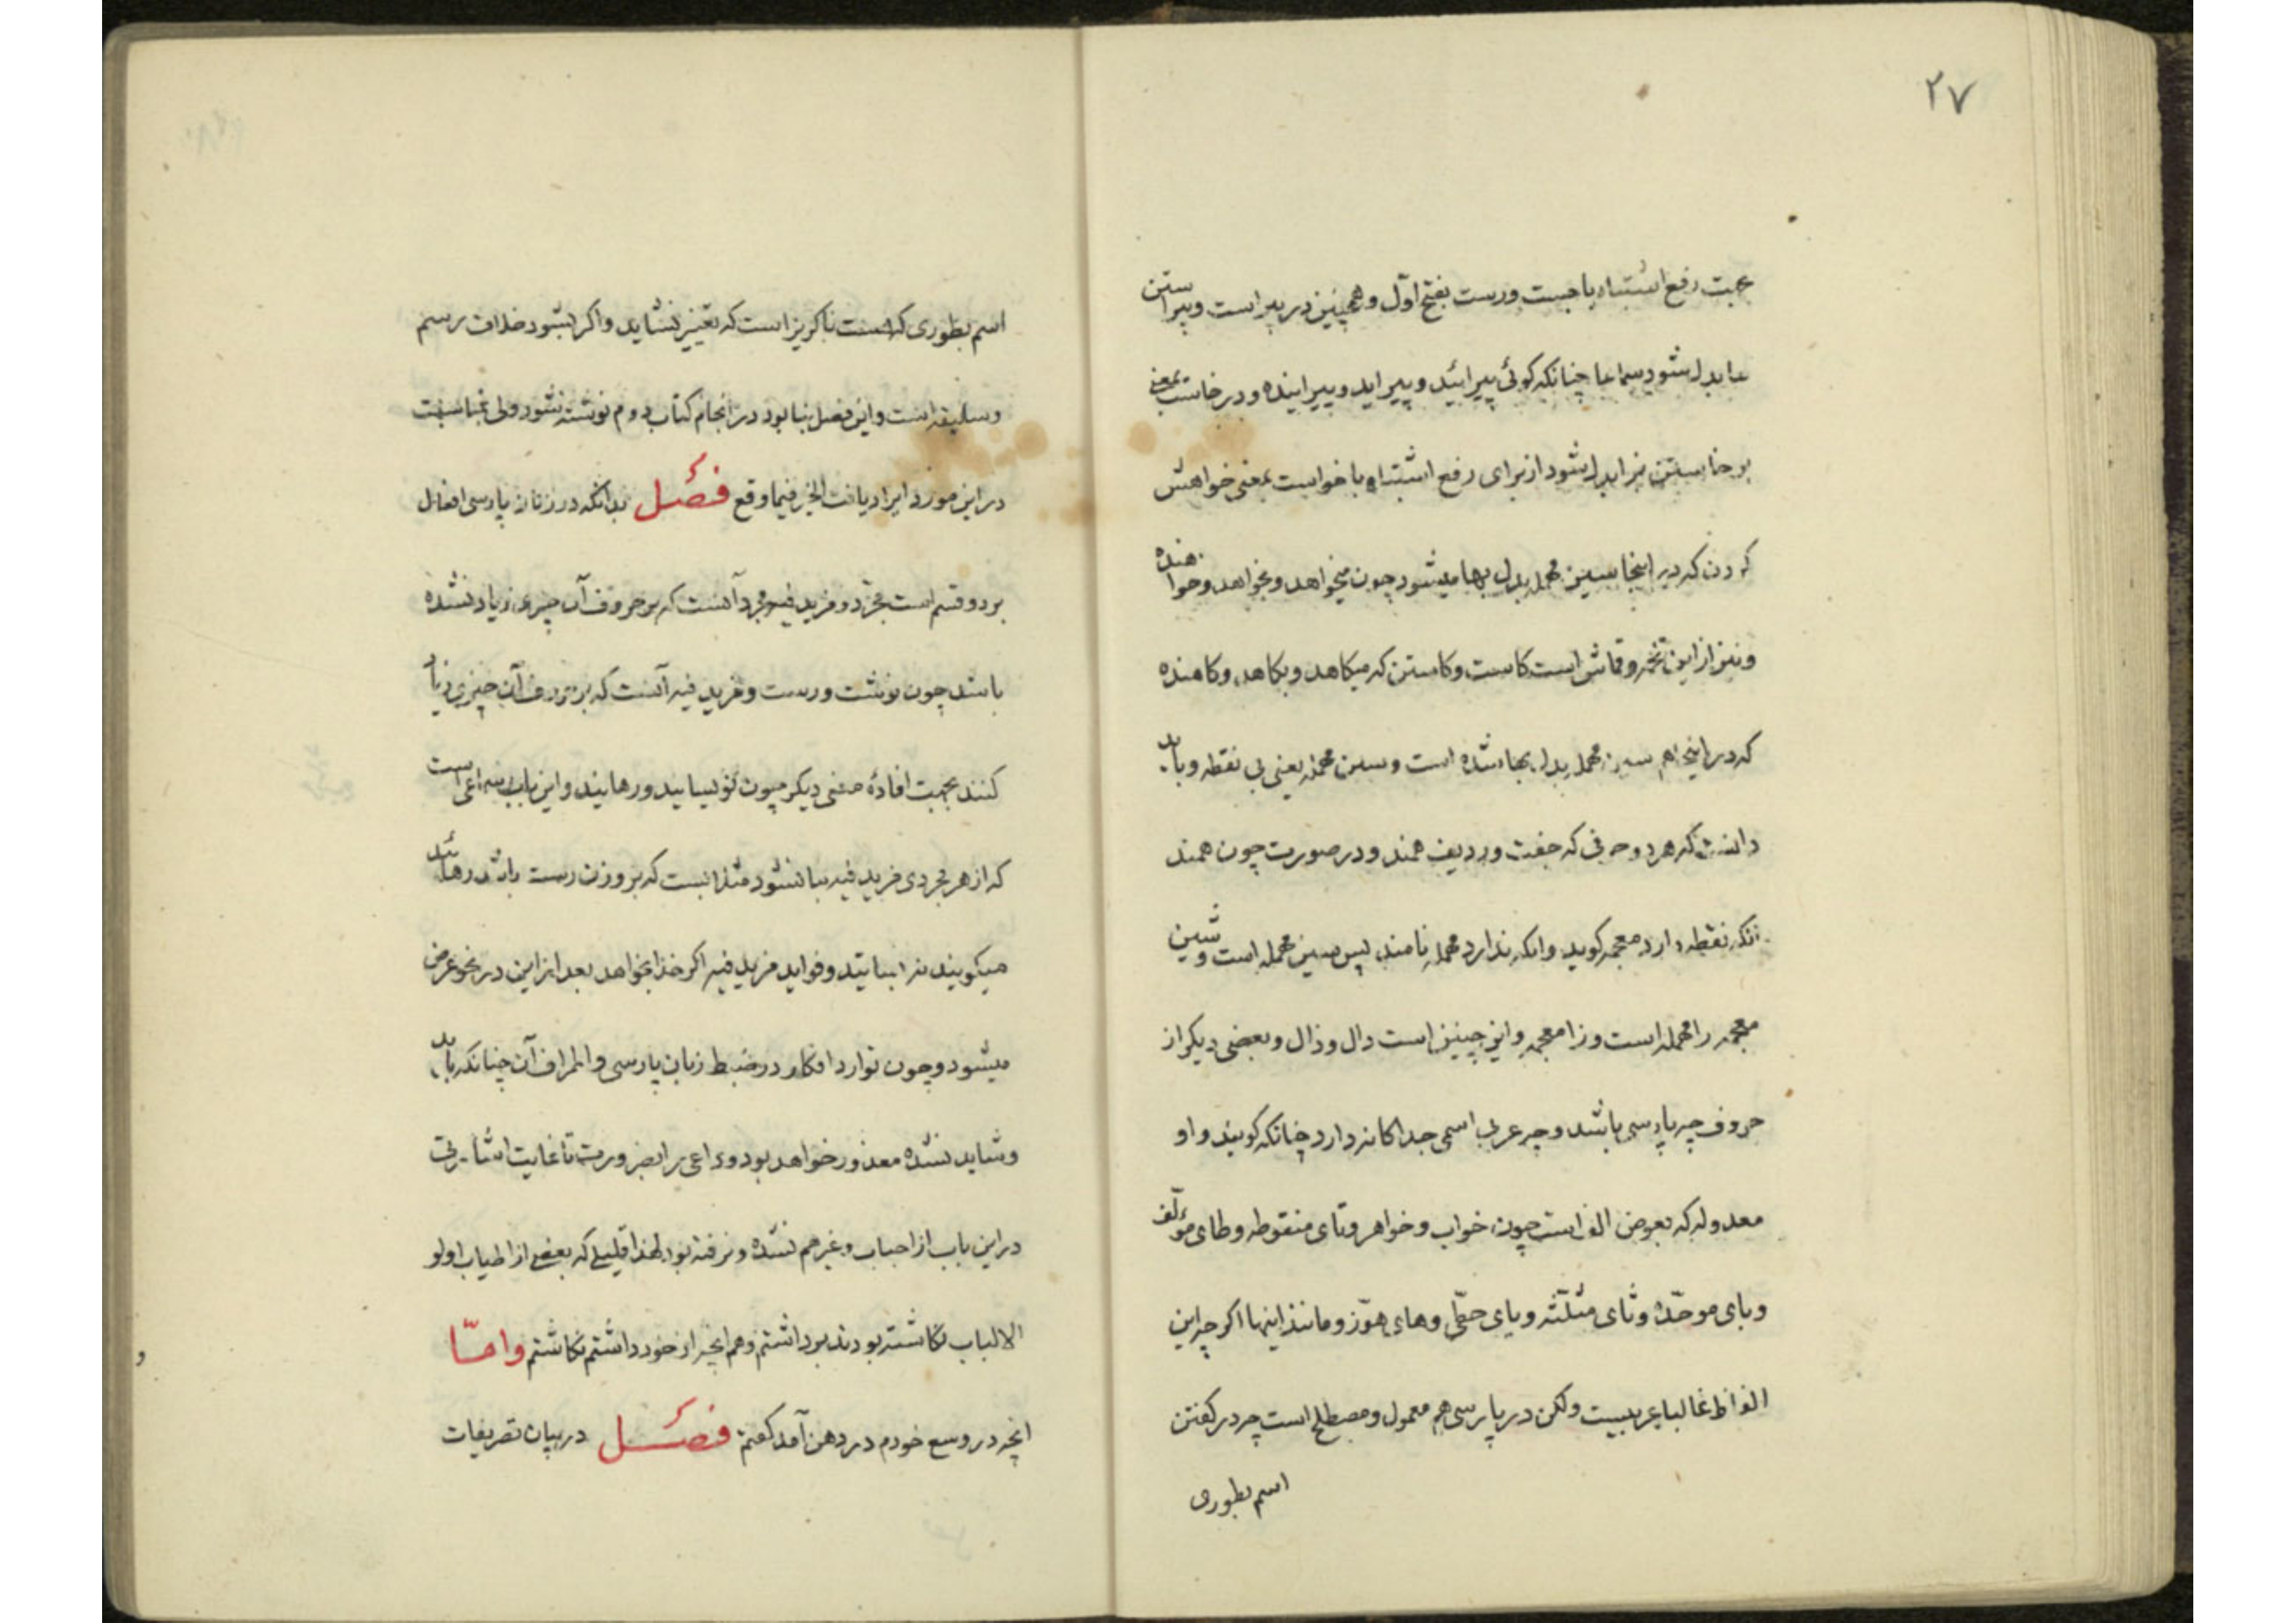 ۲۷
بجهت رفع اشتباه با جست ورست بفتح اول وهمچنین در پیراست وپیراستن
بدل شود سماعا چنانکه کوئی پیرائید وپیراید وپیراینده ودر خاست بمعنی
برخاستن نیز بدل شود از برای رفع اشتباه با خواست بمعنی خواهش
کردن که در اینجا سین مهمله بدل بها میشود چون میخواهد وبخواهد وخواهنده
ونیز از این تخمه وقماش است کاست وکاستن که میکاهد وبکاهد وکاهنده
که در اینجا هم سین مهمله بدل بها شده است وسین مهمله یعنی بی نقطه وباید
دانست که هر دو حرفی که جفت وردیف همند ودر صورت چون همند
آنکه نقطه دارد معجمه کوید وانکه ندارد مهمله نامند پس سین مهمله است وشین
معجمه را مهمله است وزا معجمه واین چنین است دال وذال وبعضی دیکر از
حروف چه پارسی باشد وچه عربی اسمی جداکانه دارد چنانکه کویند واو
معدوله که بعوض الف است چون خواب وخواهر وتای منقوطه وطای مؤلف
وبای موحده وثای مثلثه ویای حطی وهای هوز ومانند اینها اکر چه این
الفاظ غالبا عربیست ولکن در پارسی هم معمول ومصطلح است چه در کفتن
اسم بطوری
اسم بطوری که هست ناکریز است که تغییر نشاید واکر بشود خلاف رسم
وسلیقه است واین فصل بنا بود در انجام کتاب دوم نوشته شود ولی بمناسبت
در این مورد ایراد یافت الخیر فیما وقع فصل بدانکه در زبان پارسی افعال
بر دو قسم است مجرد ومزید فیه مجرد آنست که بر حروف آن چیزی زیاد نشده
باشد چون نوشت ورست ومزید فیه آنست که بر حروف آن چیزی زیاد
کنند بجهت افادهٔ معنی دیکر چون نویسانید ورهانید واین باب سماعی است
که از هر مجردی مزید فیه بنا نشود مثلا نیست که بر وزن رست باشد رهانید
میکویند نه وفواید مزید فیه اکر خدا بخواهد بعد از این در نحو عرض
میشود وچون توارد افکار در ضبط زبان پارسی واطراف آن چنانکه باید
وشاید نشده معذور خواهد بود وداعی را بضرورت تا غایت اشارتی
در این باب از احباب وغیرهم نشده ونرفته بود لهذا قلیلی که بعضی از اطیاب اولو
الالباب نکاشته بودند برداشتم وهم انچه از خود داشتم نکاشتم واما
انچه در وسع خودم در ذهن آمد کفتم فصل در بیان تصریفات